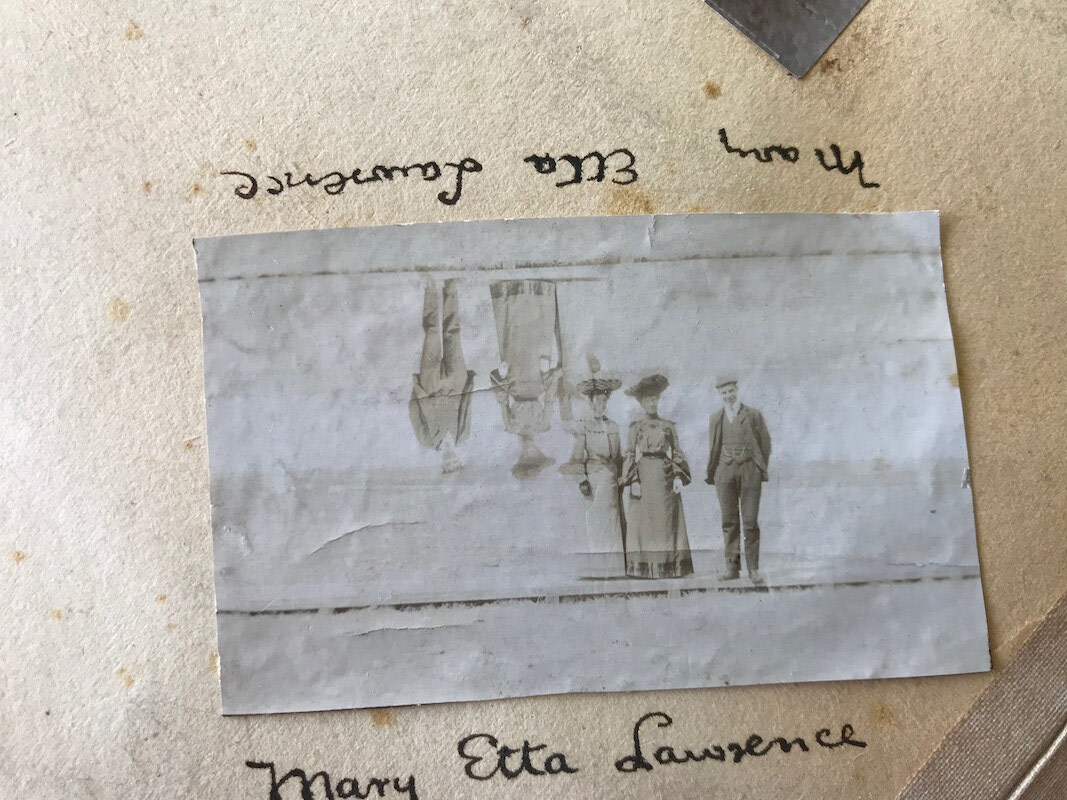 Mary Etta Lawrence
Mary Etta Lawrence